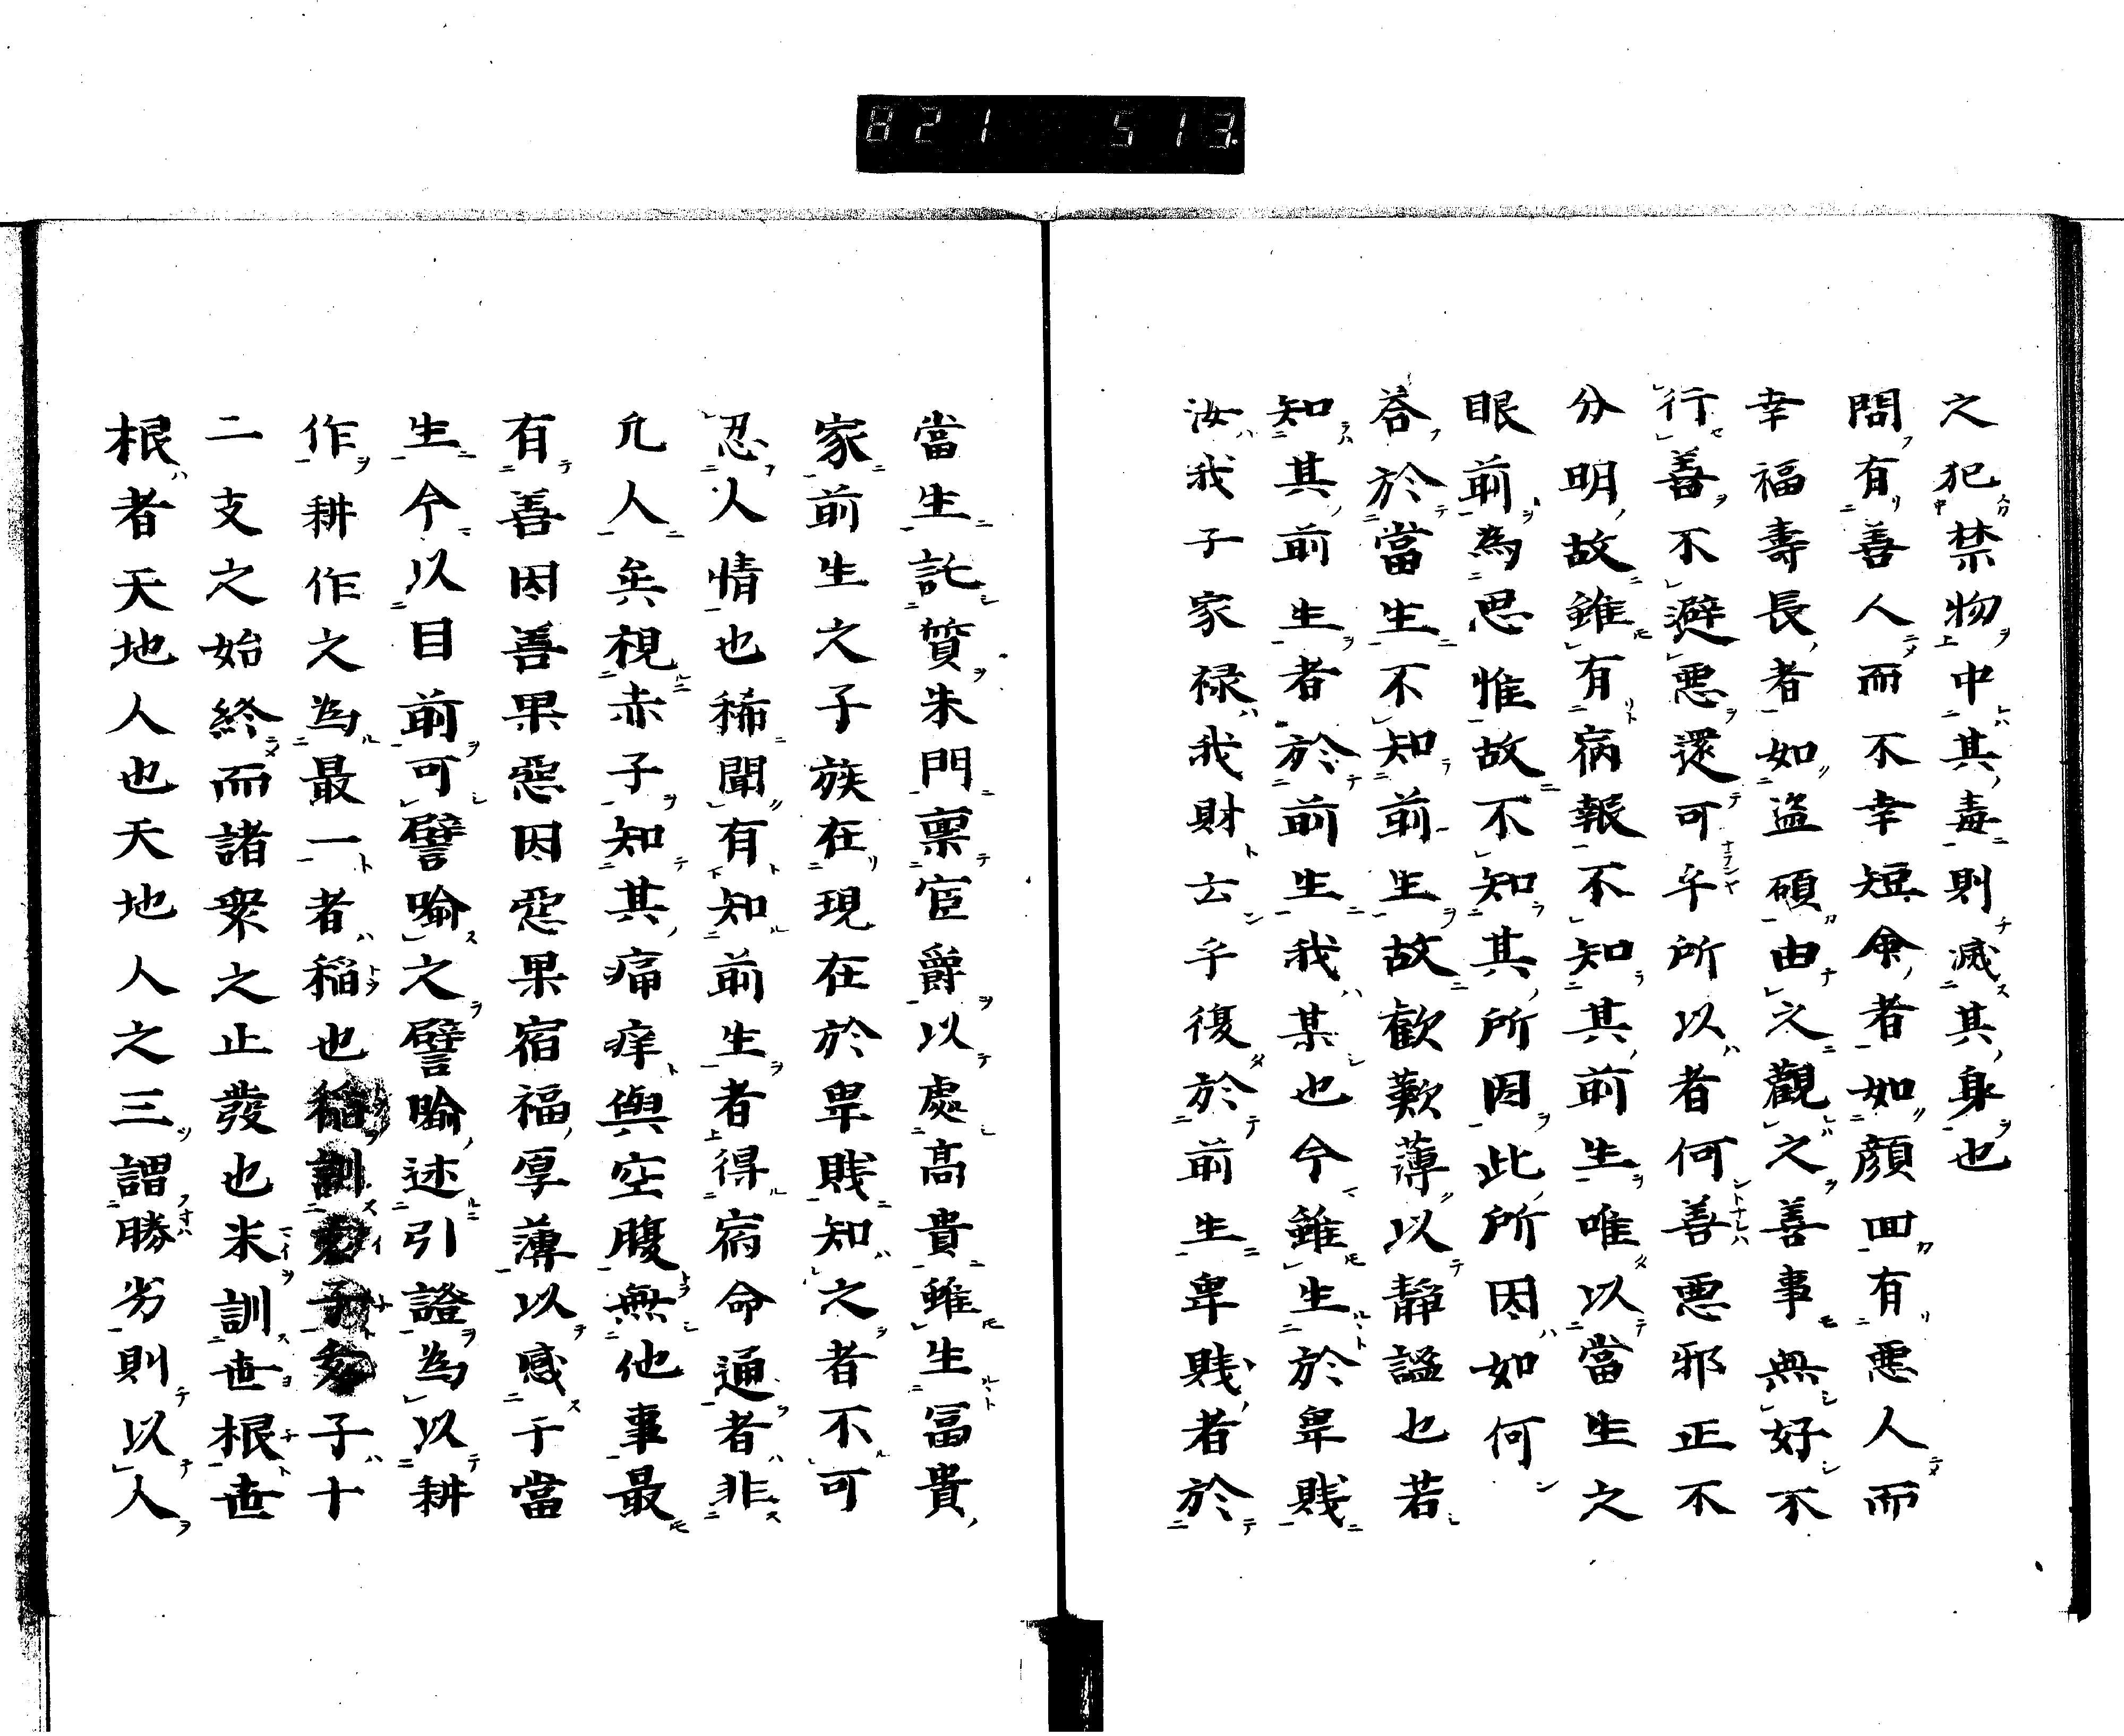 821 513
之犯禁物中其毒則滅其身也
問有善人而不幸短命者如顔回有悪人而
幸福壽長者如盗碩由之觀之善事無好不
行善不避悪還可乎所以者何善悪邪正不
分明故雖有病報不知其前生唯以當生之
眼前為思惟故不知其所因此所因如何
荅於當生不知前生故歡歎薄以靜謐也若
知其前生者於前生我某也今雖生於卑賎
汝我子家禄我財云乎復於前生卑賎者於
當生託質朱門禀宦爵以處高貴雖生冨貴
家前生之子族在現在於卑賎知之者不可
忍人情也稀聞有知前生者得宿命通者非
凢人矣視赤子知其痛痒與空腹無他事最
有善因善果惡因惡果宿福厚薄以感于當
生今以目前可譬喻之譬喻述引證為以耕
作耕作之為最一者稲也稲訓子子十
二支之始終而諸衆之止發也米訓世根世
根者天地人也天地人之三謂勝劣則以人